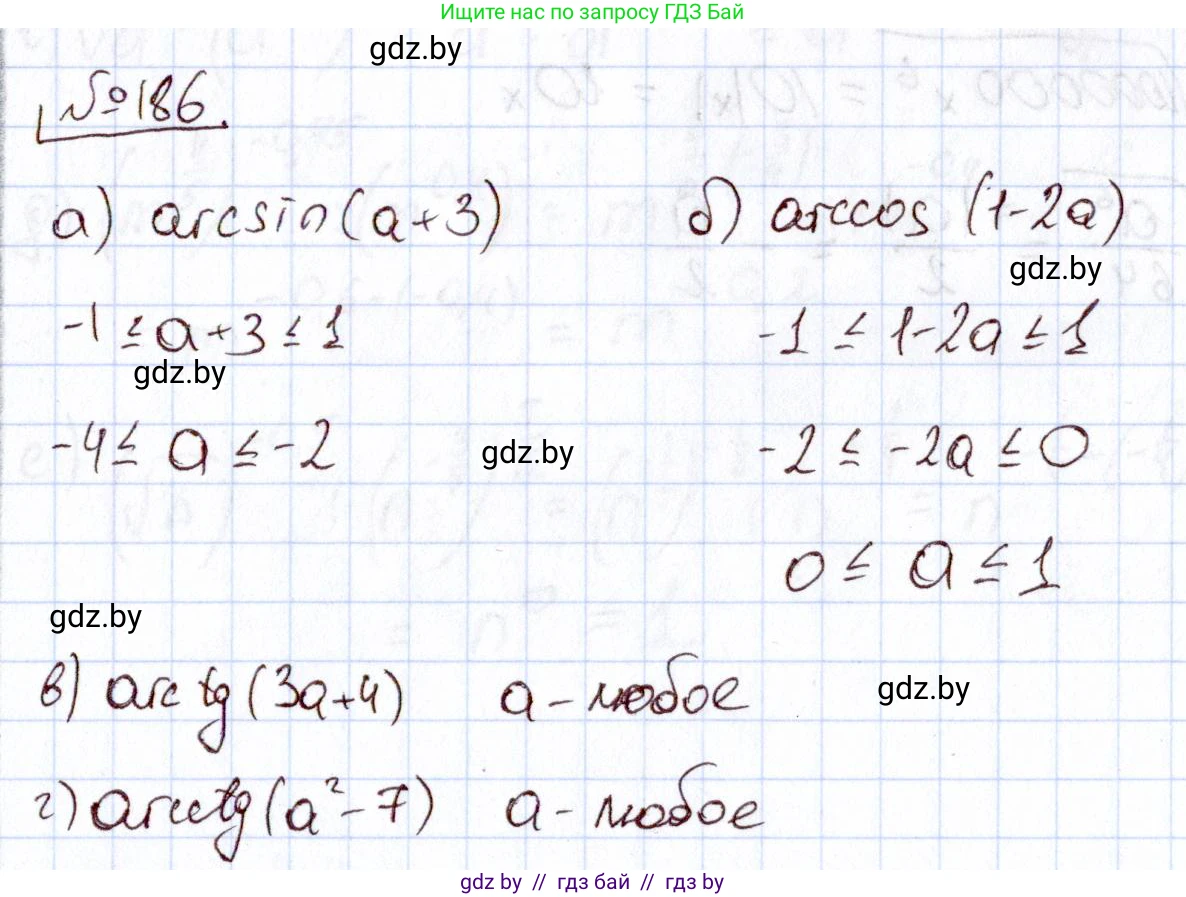 Ищите нас по запросу ГДЗ Бай
gdz.by
№186.
а) arcsin(a+3)
б) arccos (1-2a)
gdz.by
-1 ≤ a+3 ≤ 1
-1 ≤ 1-2a ≤ 1
gdz.by
-4 ≤ a ≤ -2
gdz.by
-2 ≤ -2a ≤ 0
0 ≤ a ≤ 1
gdz.by
в) arctg (3a+4) a - любое
gdz.by
г) arcctg(a²-7) a - любое
gdz by // гдз бай // гдз by